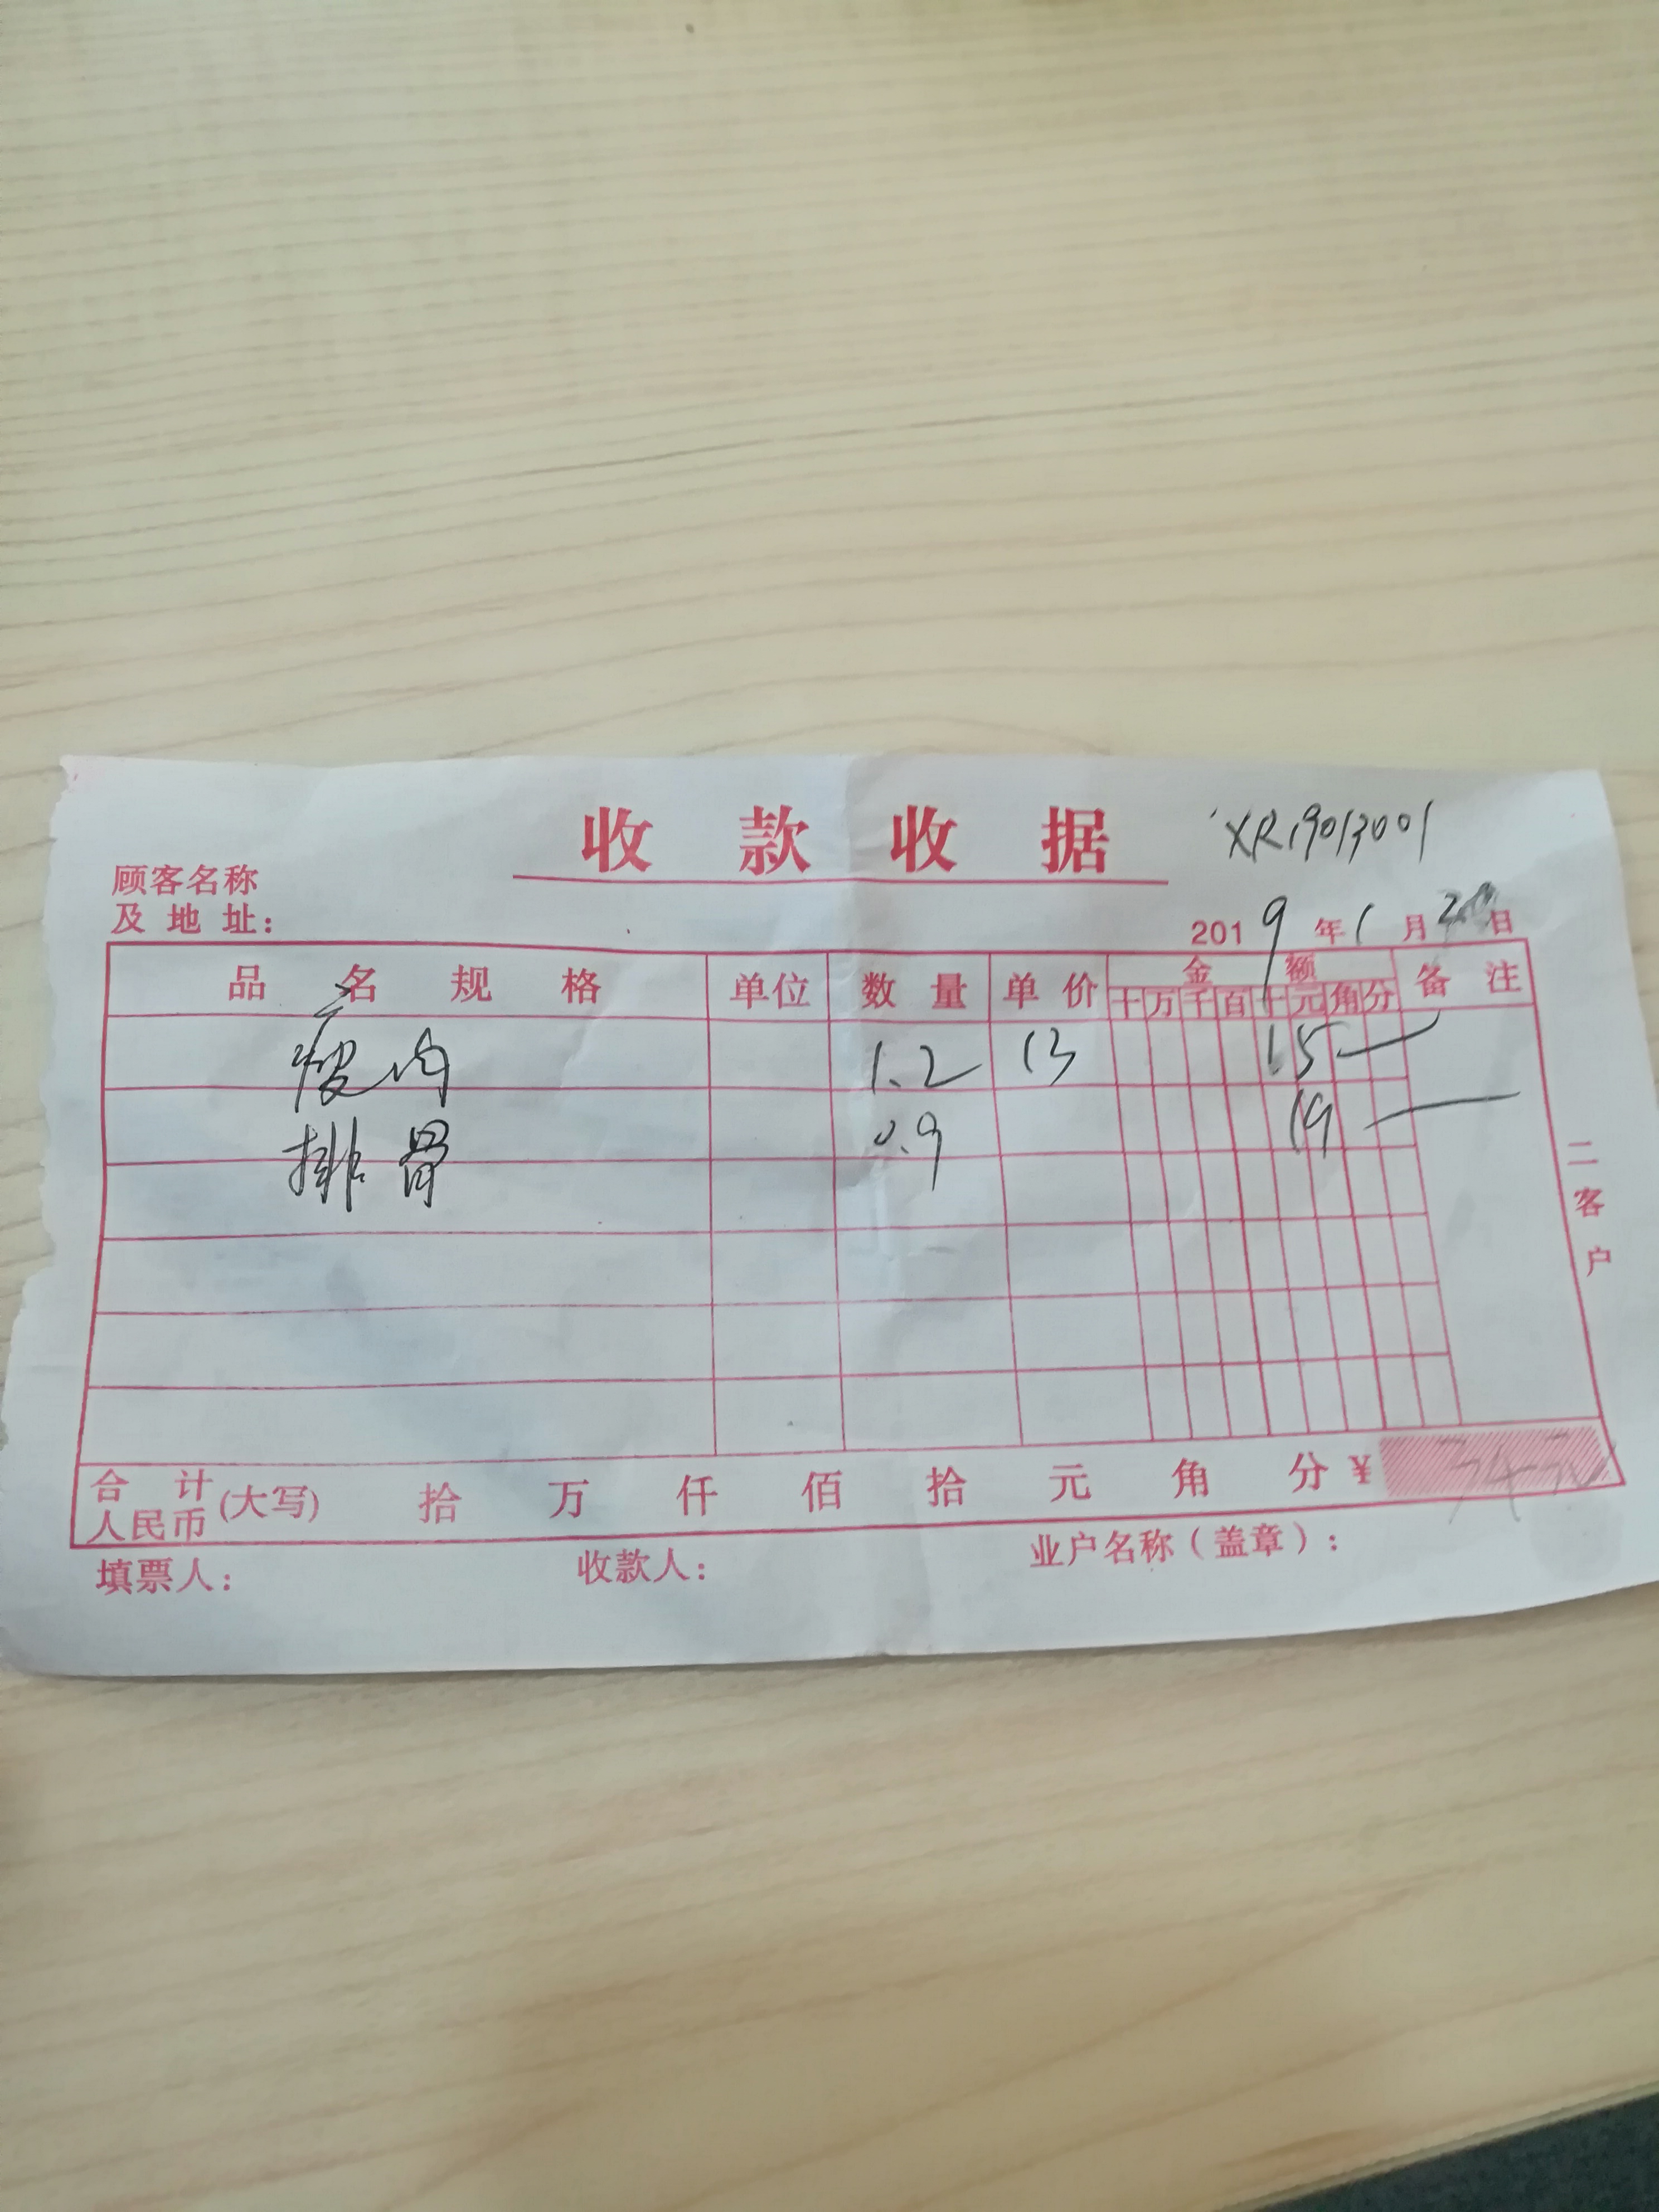 收款收据
XR19013001
顾客名称
及地址：
2019年1月 日
品名规格 单位 数量 单价 金额 备注
十 万 千 百 十 元 角 分
瘦肉 1.2 13 15
排骨 0.9 19
二客户
合计
人民币 (大写) 拾 万 仟 佰 拾 元 角 分 ¥ 34元
填票人： 收款人： 业户名称（盖章）：